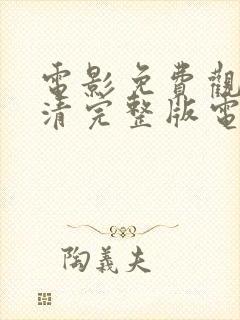 電影免費觀
清完整版電
陶義夫